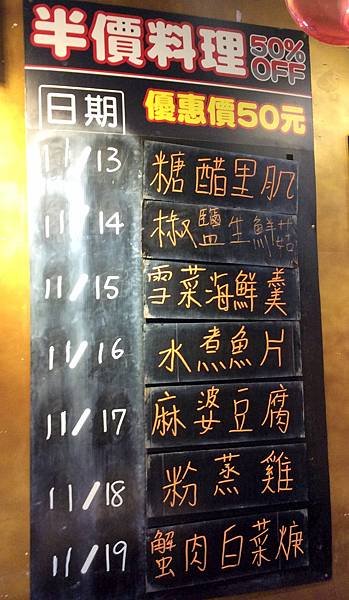 半價料理 50% OFF
日期 優惠價50元
11/13 糖醋里肌
11/14 椒鹽生鮮菇
11/15 雪菜海鮮羹
11/16 水煮魚片
11/17 麻婆豆腐
11/18 粉蒸雞
11/19 蟹肉白菜焿